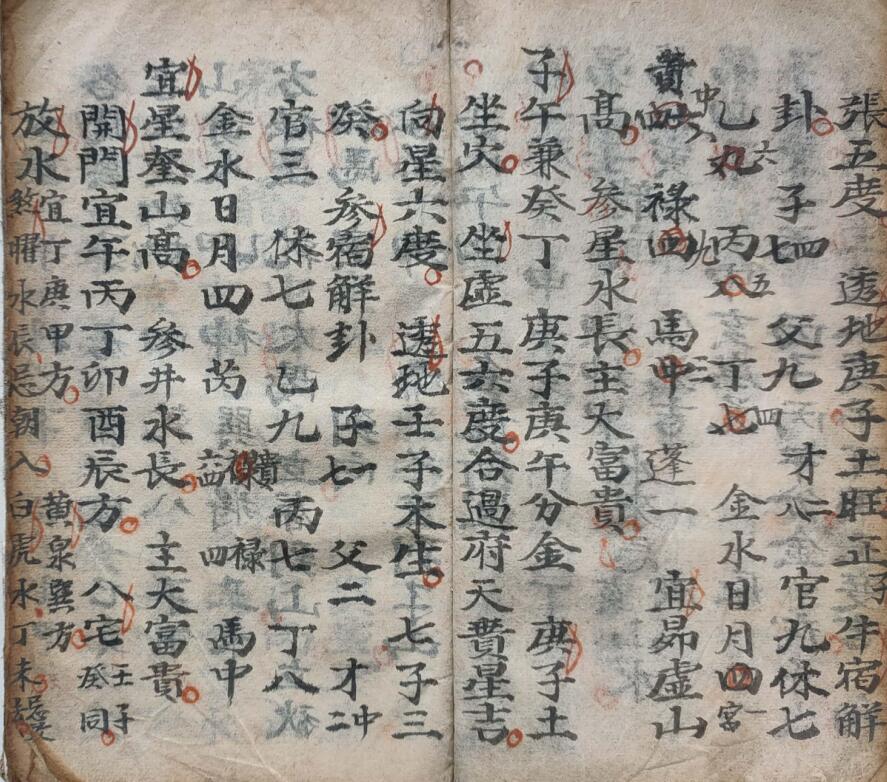 張五度 透地庚子土旺正子牛宿解
卦 子七四 父九四 才八二 官九休七
乙丸六 丙八五 丁七 金水日月四一宮
貴四中六 祿四九 馬甲三 蓬一 宜昴虛山
高 参星水長主大富貴
子午兼癸丁 庚子庚午分金 庚子土
坐穴 坐虛五六度合過府天貴星吉
向星六度 透地壬子木生 七子三
癸 参宿解卦 子七一 父二 才二中
官三 休七 乙九 丙七 丁八
金水日月四 芮 六四 貴 祿四 馬中
宜星奎山高 参井水長 主大富貴
開門宜午丙丁卯酉辰方 八宅壬子癸同
放水宜丁庚甲方 黄泉巽方
煞曜水辰忌朝入 白虎水丁未忌